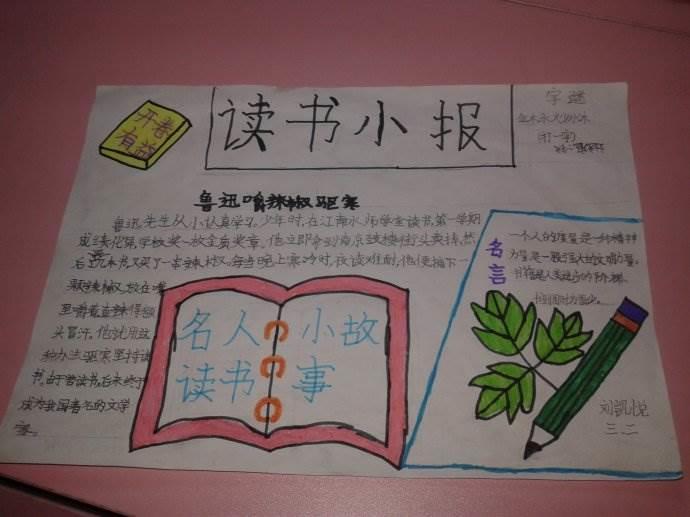 开卷
有益
读书小报
字谜
打一字
鲁迅嚼辣椒驱寒
鲁迅先生从小认真学习。少年时,在江南水师学堂读书,第一学期
成绩优异,学校奖一枚金质奖章。他立即拿到南京鼓楼街头卖掉,然
后买几本书,又买了一串辣椒。每当晚上寒冷时,夜读难耐,他便摘下一
颗辣椒,放在嘴
里嚼着直辣得额
头冒汗。他就用这
种办法驱寒坚持读
书。由于苦读书,后来终于
成为我国著名的文学
家。
名人 小故
读书 事
名言
一个人的
力量是
书籍是人类进步的阶梯。
刘凯悦
三.二